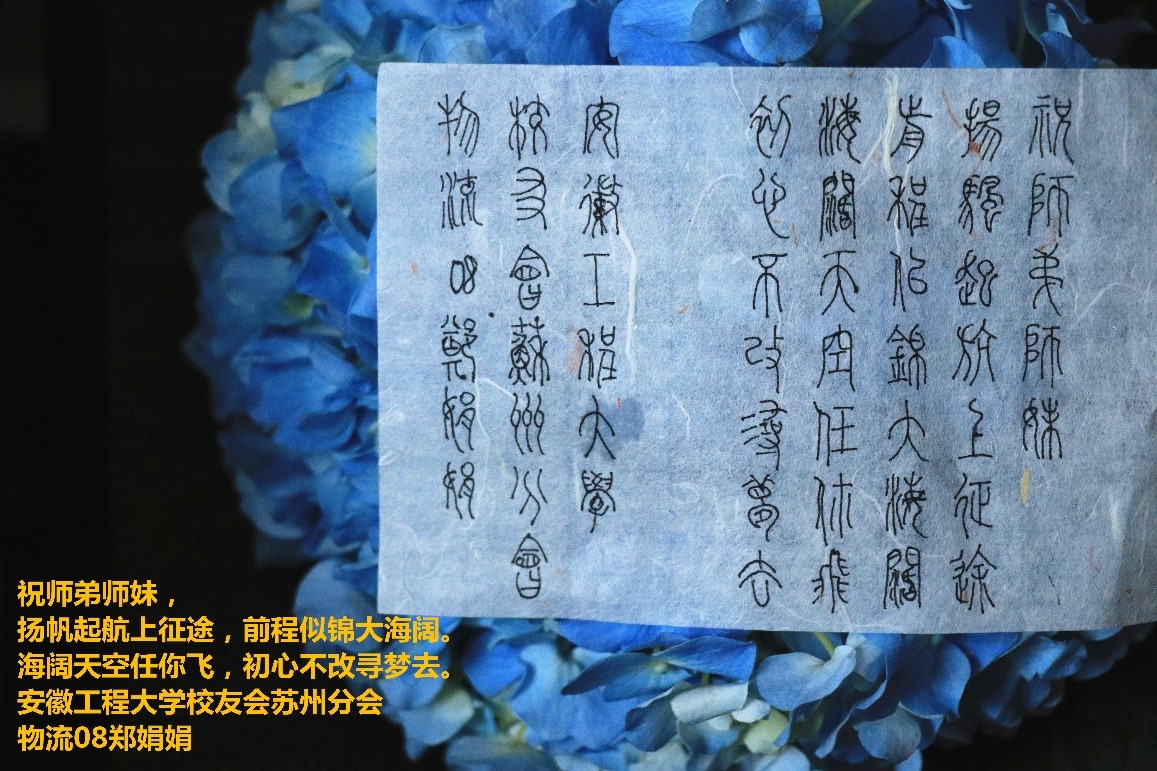 祝師弟師妹
揚帆起航上征途
前程似錦大海闊
海闊天空任你飛
初心不改尋夢去
安徽工程大學
校友會蘇州分會
物流08鄭娟娟
祝师弟师妹，
扬帆起航上征途，前程似锦大海阔。
海阔天空任你飞，初心不改寻梦去。
安徽工程大学校友会苏州分会
物流08郑娟娟